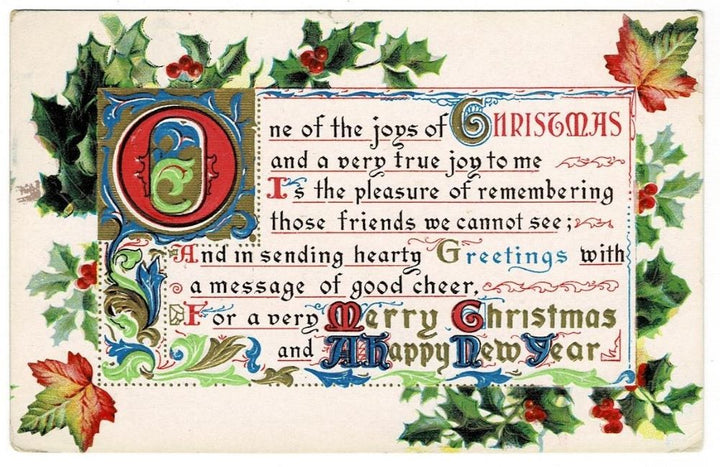 One of the joys of CHRISTMAS
and a very true joy to me
Is the pleasure of remembering
those friends we cannot see;
And in sending hearty Greetings with
a message of good cheer,
For a very Merry Christmas
and A Happy New Year